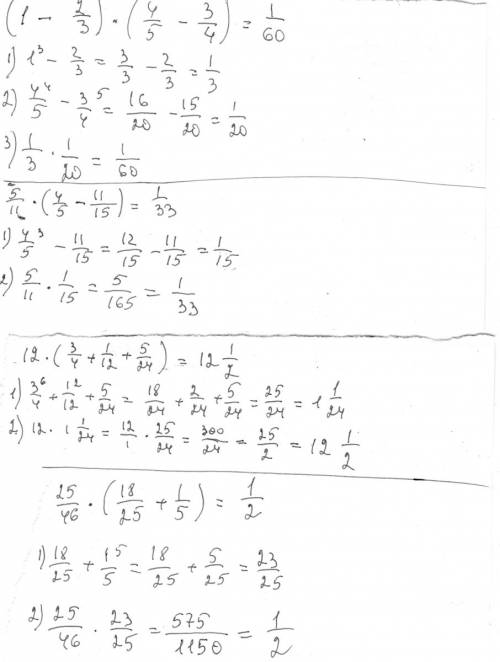 (1 - 2/3) · (4/5 - 3/4) = 1/60
1) 1³ - 2/3 = 3/3 - 2/3 = 1/3
2) 4⁴/5 - 3⁵/4 = 16/20 - 15/20 = 1/20
3) 1/3 · 1/20 = 1/60
5/11 · (4/5 - 11/15) = 1/33
1) 4³/5 - 11/15 = 12/15 - 11/15 = 1/15
2) 5/11 · 1/15 = 5/165 = 1/33
12 · (3/4 + 1/12 + 5/24) = 12 1/2
1) 3⁶/4 + 1²/12 + 5/24 = 18/24 + 2/24 + 5/24 = 25/24 = 1 1/24
2) 12 · 1 1/24 = 12/1 · 25/24 = 300/24 = 25/2 = 12 1/2
25/46 · (18/25 + 1/5) = 1/2
1) 18/25 + 1⁵/5 = 18/25 + 5/25 = 23/25
2) 25/46 · 23/25 = 575/1150 = 1/2